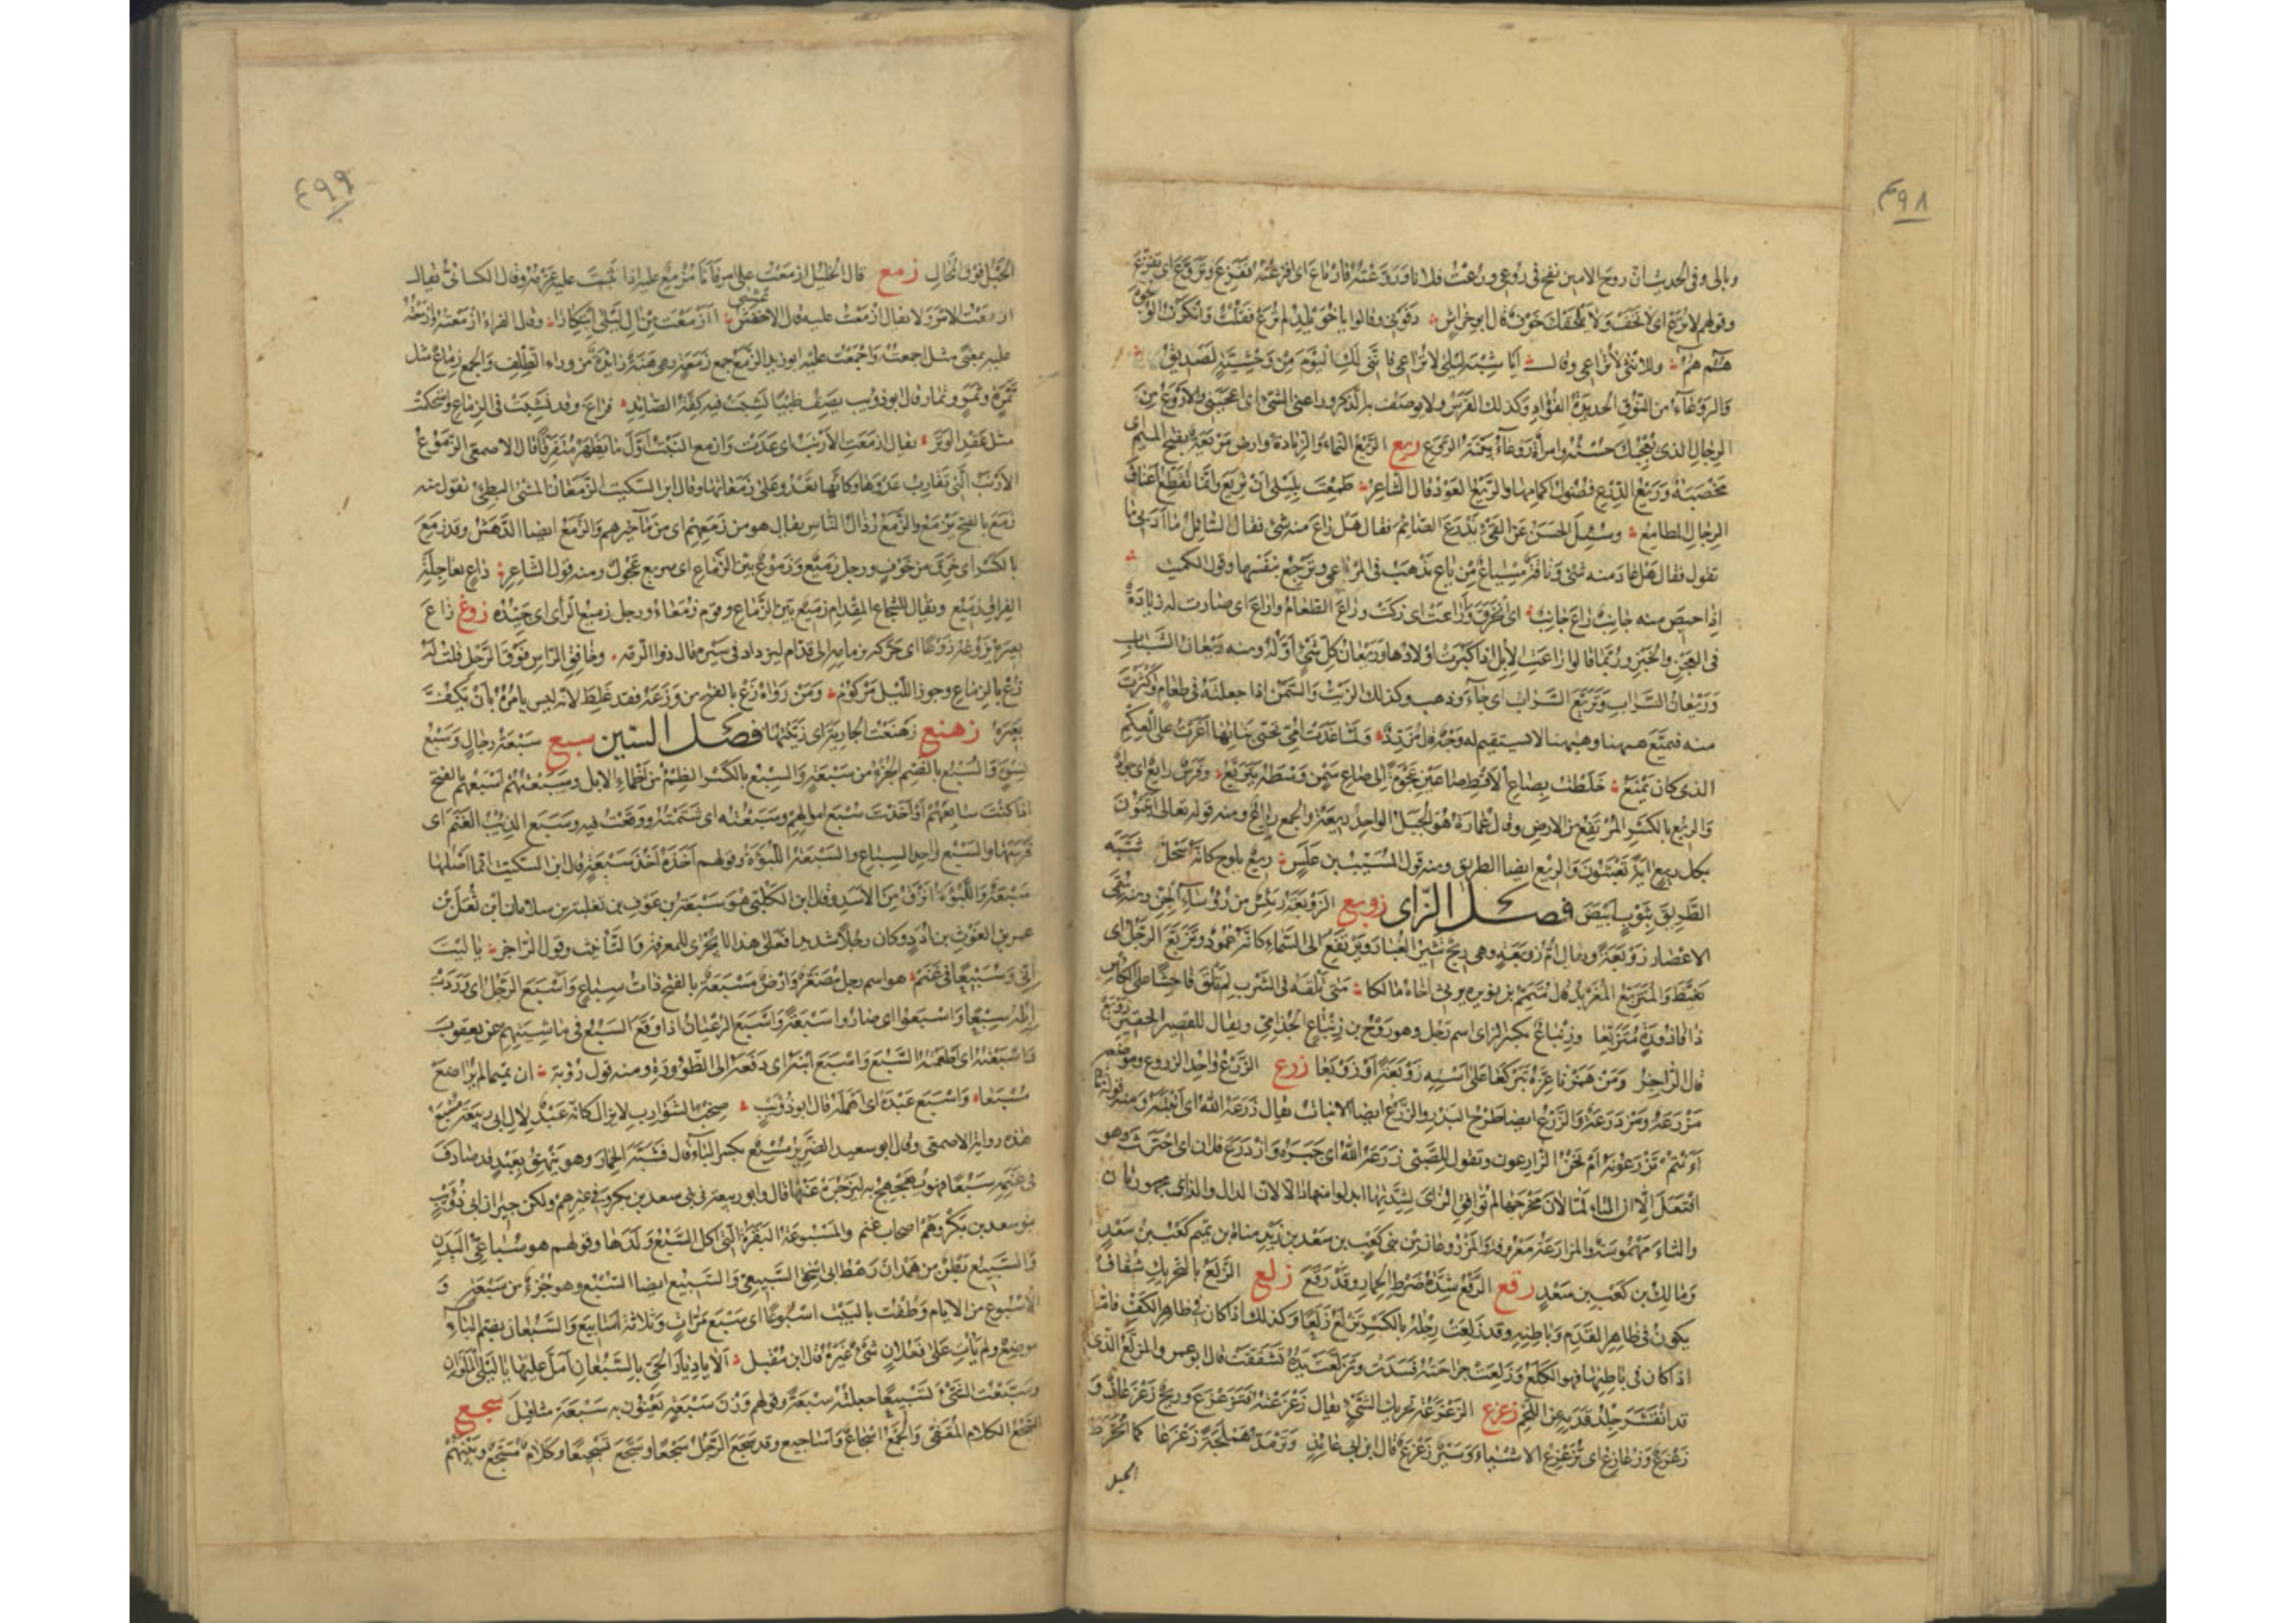 ٤٩٨
وبالى وفى الحديث ان روح الامين نفخ فى روعى ورعت فلانا وروعته فارتاع اى افزعته ففزع وتروع اى تفزع
وقولهم لا ترع اى لا تخف ولا يلحقك خوف قال ابو خراش رفونى وقالوا يا خويلد لم ترع فقلت وانكرت الوجوه
هم هم وللانثى لا تراعى وقال ايا شبه ليلى لا تراعى فاننى لك اليوم من وحشية لصديق
والروعاء من النوق الحديدة الفؤاد وكذلك الفرس ولا يوصف به الذكر وراعنى الشئ اى اعجبنى والاروع من
الرجال الذى يعجبك حسنه وامراة روعاء بينة الروع ريع الريع النماء والزيادة وارض مريعة بفتح الميم اى
مخصبة وريع الدرع فضول اكمامها والريع العود قال الشاعر طمعت بليلى ان تريع وانما تقطع اعناق
الرجال المطامع وسئل الحسن عن القئ يذرع الصائم فقال هل راع منه شئ فقال السائل ما ادرى ما
تقول فقال هل عاد منه شئ وناقة مسياع مرياع تذهب فى المرعى وترجع بنفسها وقول الكميت
اذا حيص منه جانب راع جانب اى انخرق وراعت اى زكت وراع الطعام واراع اى صارت له زيادة
فى العجن والخبز وربما قالوا اراعت الابل اذا كثرت اولادها وريعان كل شئ اوله ومنه ريعان الشباب
وريعان السراب وتريع السراب اى جاء وذهب وكذلك الزيت والسمن اذا جعلته فى طعام واكثرت
منه فتميع ههنا وههنا لا يستقيم له وجه قال مزرد ولما غدت امى تحيى بناتها اغرت على العكم
الذى كان يمنع خلطت بصاع الاقط صاعين عجوة الى صاع سمن وسطه يتريع وفرس رايع اى جواد
والريع بالكسر المرتفع من الارض وقال عمارة هو الجبل الواحد ريعة والجمع رياع ومنه قوله تعالى اتبنون
بكل ريع اية تعبثون والريع ايضا الطريق ومنه قول المسيب بن علس ريع يلوح كانه سحل شبه
الطريق بثوب ابيض فصل الزاى زوبع الزوبعة رئيس من رؤساء الجن ومنه سمى
الاعصار زوبعة ويقال ام زوبعة وهى ريح تثير الغبار وترتفع الى السماء كانه عمود وتزبع الرجل اى
تغيظ والمتزبع المعربد قال متمم بن نويرة يرثى اخاه مالكا متى تلقه فى الشرب لم تلق فاحشا على الكاس
ذا قاذورة متزبعا وزنباع بكسر الزاى اسم رجل وهو روح بن زنباع الجذامى ويقال للقصير الحقير زوبع
قال الراجز ومن همزنا عزه تبركعا على استه زوبعة او زوبعا زرع الزرع واحد الزروع وموضعه
مزرعة ومزدرعة والزرع ايضا طرح البذر والزرع ايضا الانبات يقال زرعه الله اى انبته ومنه قوله تعالى
اانتم تزرعونه ام نحن الزارعون وتقول للصبى زرعه الله اى جبره وازدرع فلان اى احترث وهو
افتعل الا ان التاء لما لان مخرجها لم توافق الزاى لشدتها ابدلوا منها دالا لان الدال والزاى مجهورتان
والتاء مهموسة والمزارعة معروفة والمزروعان من بنى كعب بن سعد بن زيد مناة بن تميم كعب بن سعد
ومالك بن كعب بن سعد زقع الزقع شدة ضرط الحمار وقد زقع زلع الزلع بالتحريك شقاق
يكون فى ظاهر القدم وباطنه وقد زلعت رجله بالكسر تزلع زلعا وكذلك اذا كان فى ظاهر الكف فاما
اذا كان فى باطنها فهو الكلع وزلعت جراحته فسدت وتزلعت يده تشققت قال ابو عمرو المزلع الذى
قد انقشر جلد قدمه عن اللحم زعزع الزعزعة تحريك الشئ يقال زعزعته فتزعزع وريح زعزعان و
زعزع وزعازع اى تزعزع الاشياء وسير زعزع قال ابن ابى عائذ وترمد هملجة زعزعا كما انخرط
الحبل
٤٩٩
الحبل فوق المحال زمع قال الخليل ازمعت على امر فانا مزمع عليه اذا ثبت عليه عزمه وقال الكسائى يقال
ازمعت الامر ولا يقال ازمعت عليه قال الاعشى اازمعت من ال ليلى ابتكارا وقال الفراء ازمعته وازمعت
عليه بمعنى مثل اجمعته واجمعت عليه ابو زيد الزمع جمع زمعة وهى هنة زائدة من وراء الظلف والجمع زماع مثل
ثمرة وثمر وثمار قال ابو ذؤيب يصف ظبيا نشبت فيه كفة الصائد فراغ وقد نشبت فى الزماع واستحكت
مثل عقد الوتر يقال ازمعت الارنب اى عدت وازمع النبت اول ما يظهر متفرقا قال الاصمعى الزموع
الارنب التى تقارب عدوها وكانها تعدو على زمعاتها وقال ابن السكيت الزمعان المشى البطئ تقول منه
زمع بالفتح يزمع والزمع رذال الناس يقال هو من زمعهم اى من مآخيرهم والزمع ايضا الدهش وقد زمع
بالكسر اى خرق من خوف ورجل زميع وزموع بين الزماع اى سريع عجول ومنه قول الشاعر داع بعاجلة
الفراق زميع ويقال للشجاع المقدام زميع بين الزماع وقوم زمعاء ورجل زميع الراى اى جيده زوع زاع
بعيره يزوعه زوعا اى حركه بزمامه الى قدام ليزداد فى سيره قال ذو الرمة وخافق الراس فوق الرحل قلت له
زع بالزمام وجوز الليل مركوم ومن رواه زع بالفتح من وزعه فقد غلط لانه ليس يامره بان يكف
بعيره زهنع زهنعت الجارية اى زينتها فصل السين سبع سبعة رجال وسبع
نسوة والسبع بالضم الجزء من سبعة والسبع بالكسر الظمء من اظماء الابل وسبعتهم اسبعهم بالفتح
اذا كنت سابعهم او اخذت سبع اموالهم وسبعته اى شتمته ووقعت فيه وسبع الذئب الغنم اى
فرسها والسبع واحد السباع والسبعة اللبؤة وقولهم اخذه اخذ سبعة قال ابن السكيت انما اصلها
سبعة واللبؤة انزق من الاسد وقال ابن الكلبى هو سبعة بن عوف بن ثعلبة بن سلامان بن ثعل بن
عمرو بن الغوث بن ادد وكان رجلا شديدا فعلى هذا لا يجرى للمعرفة والتانيث وقول الراجز يا ليت
انى وسبيعا فى غنم هو اسم رجل مصغر وارض مسبعة بالفتح ذات سباع واسبع الرجل اى وردت
ابله سبعا واسبعوا اى صاروا سبعة واسبع الرعيان اذا وقع السبع فى ماشيتهم عن يعقوب
واسبعته اى اطعمته السبع واسبع ابنه اى دفعه الى الظؤورة ومنه قول رؤبة ان تميما لم يراضع
مسبعا واسبع عبده اى اهمله قال ابو ذؤيب صخب الشوارب لا يزال كانه عبد لال ابى ربيعة مسبع
هذه رواية الاصمعى وقال ابو سعيد الضرير مسبع بكسر الباء وقال فشبه الحمار وهو ينهق بعبد قد صادف
فى غنمه سبعا فهو يهجهج به ليزجره عنها قال وابو ربيعة فى بنى سعد بن بكر وفى غيرهم ولكن جيران ابى ذؤيب
بنو سعد بن بكر وهم اصحاب غنم والمسبوعة البقرة التى اكل السبع ولدها وقولهم هو سباعى البدن
والسبيع بطن من همدان رهط ابى اسحق السبيعى والسبيع ايضا السبع وهو جزء من سبعة و
الاسبوع من الايام وطفت بالبيت اسبوعا اى سبع مرات وثلاثة اسابيع والسبعان بضم الباء
موضع ولم يات على فعلان شئ غيره قال ابن مقبل الا يا ديار الحى بالسبعان امل عليها بالبلى الملوان
وسبعت الشئ تسبيعا جعلته سبعة وقولهم وزن سبعة يعنون به سبعة مثاقيل سجع
السجع الكلام المقفى والجمع اسجاع واساجيع وقد سجع الرجل سجعا وسجع تسجيعا وكلام مسجع وبينهم